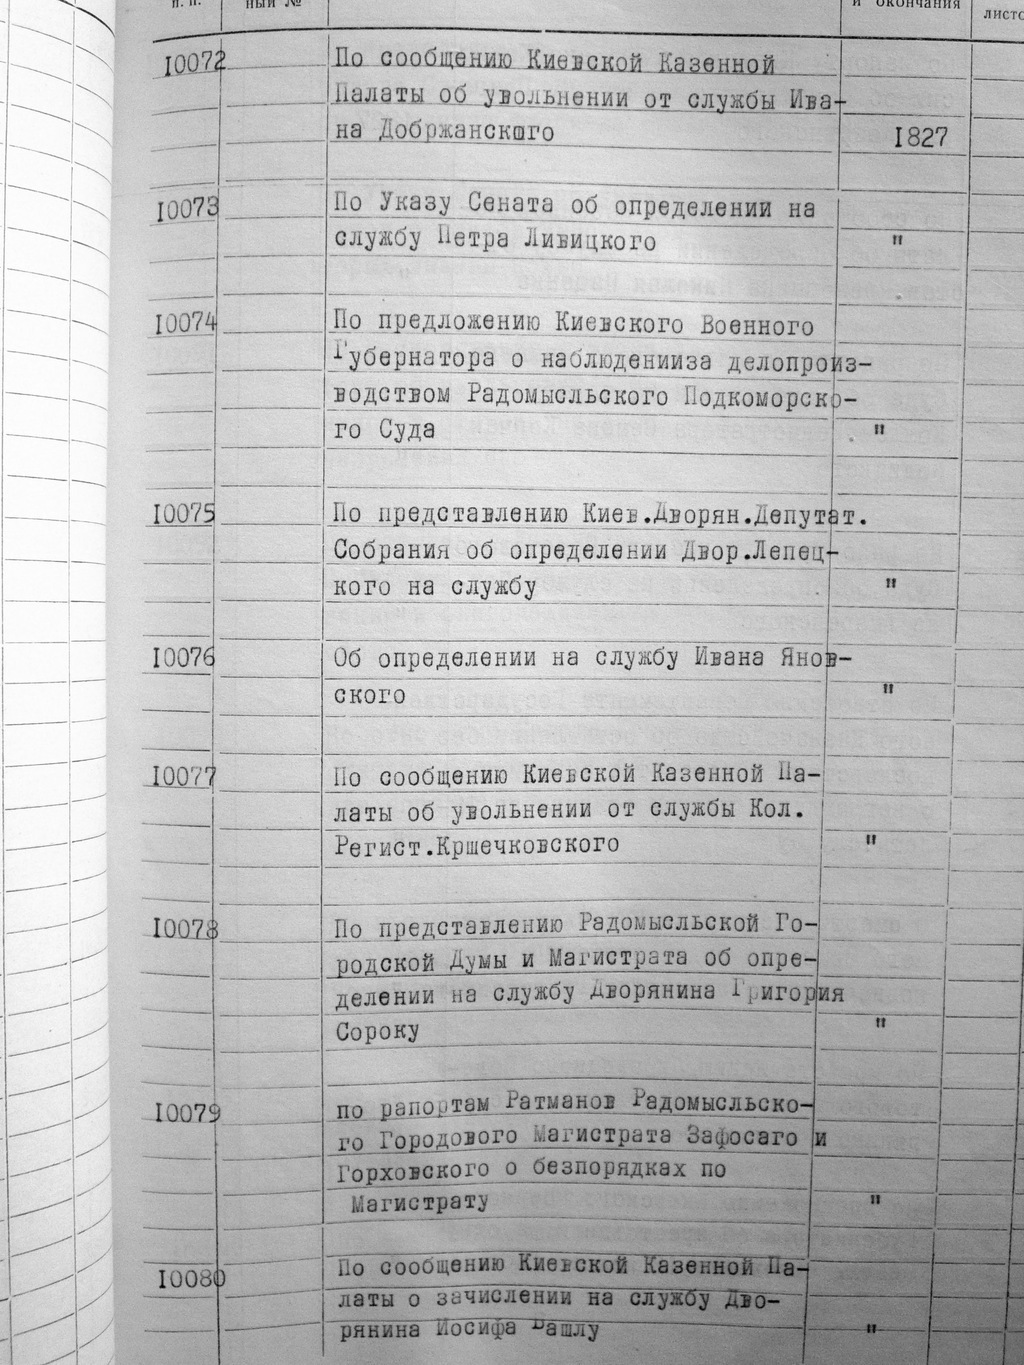 п. п.
ный №
и окончания
листо
I0072
По сообщению Киевской Казенной
Палаты об увольнении от службы Ива-
на Добржанского
I827
I0073
По Указу Сената об определении на
службу Петра Ливицкого
"
I0074
По предложению Киевского Военного
Губернатора о наблюденииза делопроиз-
водством Радомысльского Подкоморско-
го Суда
"
I0075
По представлению Киев.Дворян.Депутат.
Собрания об определении Двор.Лепец-
кого на службу
"
I0076
Об определении на службу Ивана Янов-
ского
"
I0077
По сообщению Киевской Казенной Па-
латы об увольнении от службы Кол.
Регист.Кршечковского
"
I0078
По представлению Радомысльской Го-
родской Думы и Магистрата об опре-
делении на службу Дворянина Григория
Сороку
"
I0079
по рапортам Ратманов Радомысльско-
го Городового Магистрата Зафосаго и
Горховского о безпорядках по
Магистрату
"
I0080
По сообщению Киевской Казенной Па-
латы о зачислении на службу Дво-
рянина Иосифа Вашлу
"